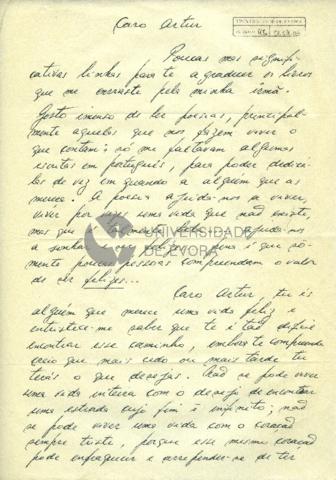 Caro Artur
Poucas mas signifi-
cativas linhas para te agradecer os livros
que me enviaste pela minha irmã.
Gosto imenso de ler poesias, principal-
mente aquelas que nos fazem viver o
que contam: só me faltavam algumas
escritas em português, para poder dedicá-
las de vez em quando a alguém que as
mereça. A poesia ajuda-nos a viver,
viver por uma vida que não existe,
mas que ajuda-nos
a sonhar e é que sò-
mente poucas pessoas compreendam o valor
de ser felizes...
Caro Artur, tu és
alguém que merece uma vida feliz e
entristece-me saber que te é tão difícil
encontrar esse caminho, embora te compreenda
creio que mais cedo ou mais tarde tu
terás o que desejas. Não se pode viver
uma vida inteira com o desejo de encontrar
uma estrada cujo fim é infinito; não
se pode viver uma vida com o coração
sempre triste, porque esse mesmo coração
pode enfraquecer e arrepender-se de ter
UNIVERSIDADE
DE ÉVORA